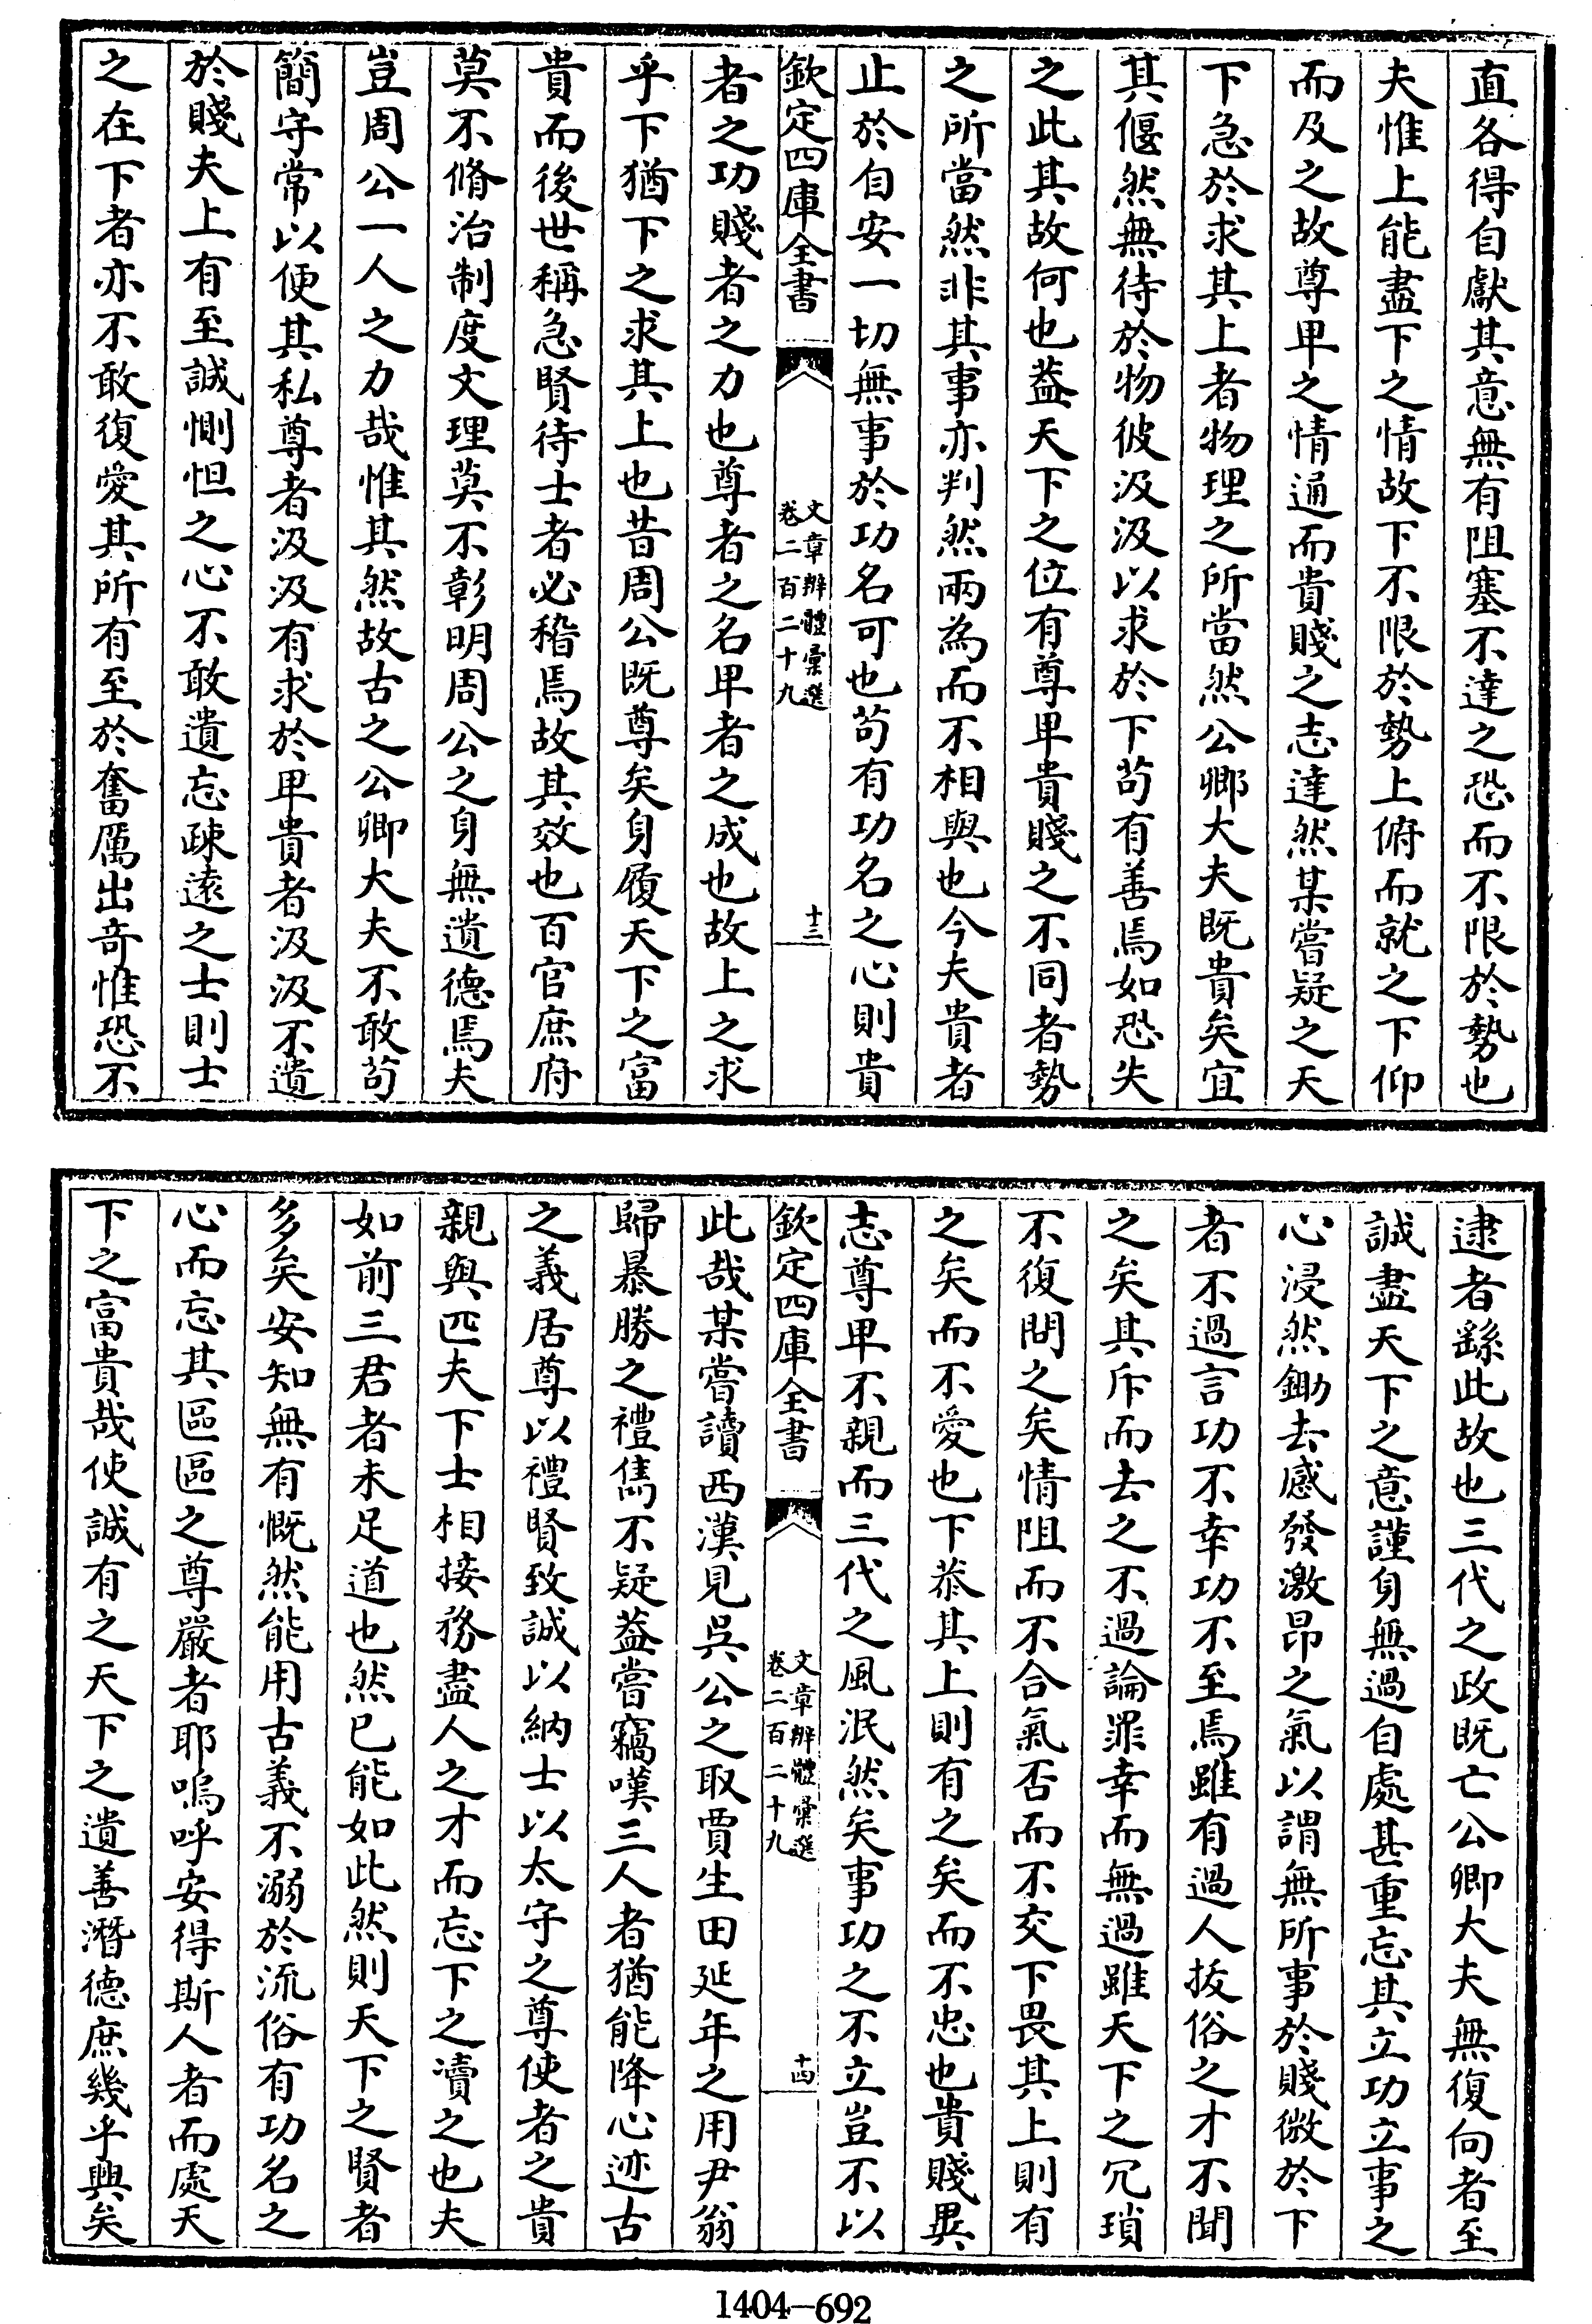 直各得自獻其意無有阻塞不達之恐而不限於勢也
夫惟上能盡下之情故下不限於勢上俯而就之下仰
而及之故尊卑之情通而貴賤之志達然某嘗疑之天
下急於求其上者物理之所當然公卿大夫既貴矣宜
其偃然無待於物彼汲汲以求於下苟有善焉如恐失
之此其故何也葢天下之位有尊卑貴賤之不同者勢
之所當然非其事亦判然兩為而不相與也今夫貴者
止於自安一切無事於功名可也苟有功名之心則貴
欽定四庫全書
文章辨體彚選
卷二百二十九
十三
者之功賤者之力也尊者之名卑者之成也故上之求
乎下猶下之求其上也昔周公既尊矣身履天下之富
貴而後世稱急賢待士者必稽焉故其效也百官庶府
莫不脩治制度文理莫不彰明周公之身無遺德焉夫
豈周公一人之力哉惟其然故古之公卿大夫不敢苟
簡守常以便其私尊者汲汲有求於卑貴者汲汲不遺
於賤夫上有至誠惻怛之心不敢遺忘疎遠之士則士
之在下者亦不敢復愛其所有至於奮厲出竒惟恐不
逮者繇此故也三代之政既亡公卿大夫無復向者至
誠盡天下之意謹身無過自處甚重忘其立功立事之
心浸然鋤去感發激昂之氣以謂無所事於賤微於下
者不過言功不幸功不至焉雖有過人拔俗之才不聞
之矣其斥而去之不過論罪幸而無過雖天下之冗瑣
不復問之矣情阻而不合氣否而不交下畏其上則有
之矣而不愛也下恭其上則有之矣而不忠也貴賤異
志尊卑不親而三代之風泯然矣事功之不立豈不以
欽定四庫全書
文章辨體彚選
卷二百二十九
十四
此哉某嘗讀西漢見吳公之取賈生田延年之用尹翁
歸暴勝之禮雋不疑葢嘗竊嘆三人者猶能降心迹古
之義居尊以禮賢致誠以納士以太守之尊使者之貴
親與匹夫下士相接務盡人之才而忘下之瀆之也夫
如前三君者未足道也然已能如此然則天下之賢者
多矣安知無有慨然能用古義不溺於流俗有功名之
心而忘其區區之尊嚴者耶嗚呼安得斯人者而處天
下之富貴哉使誠有之天下之遺善潛德庶幾乎興矣
1404—692